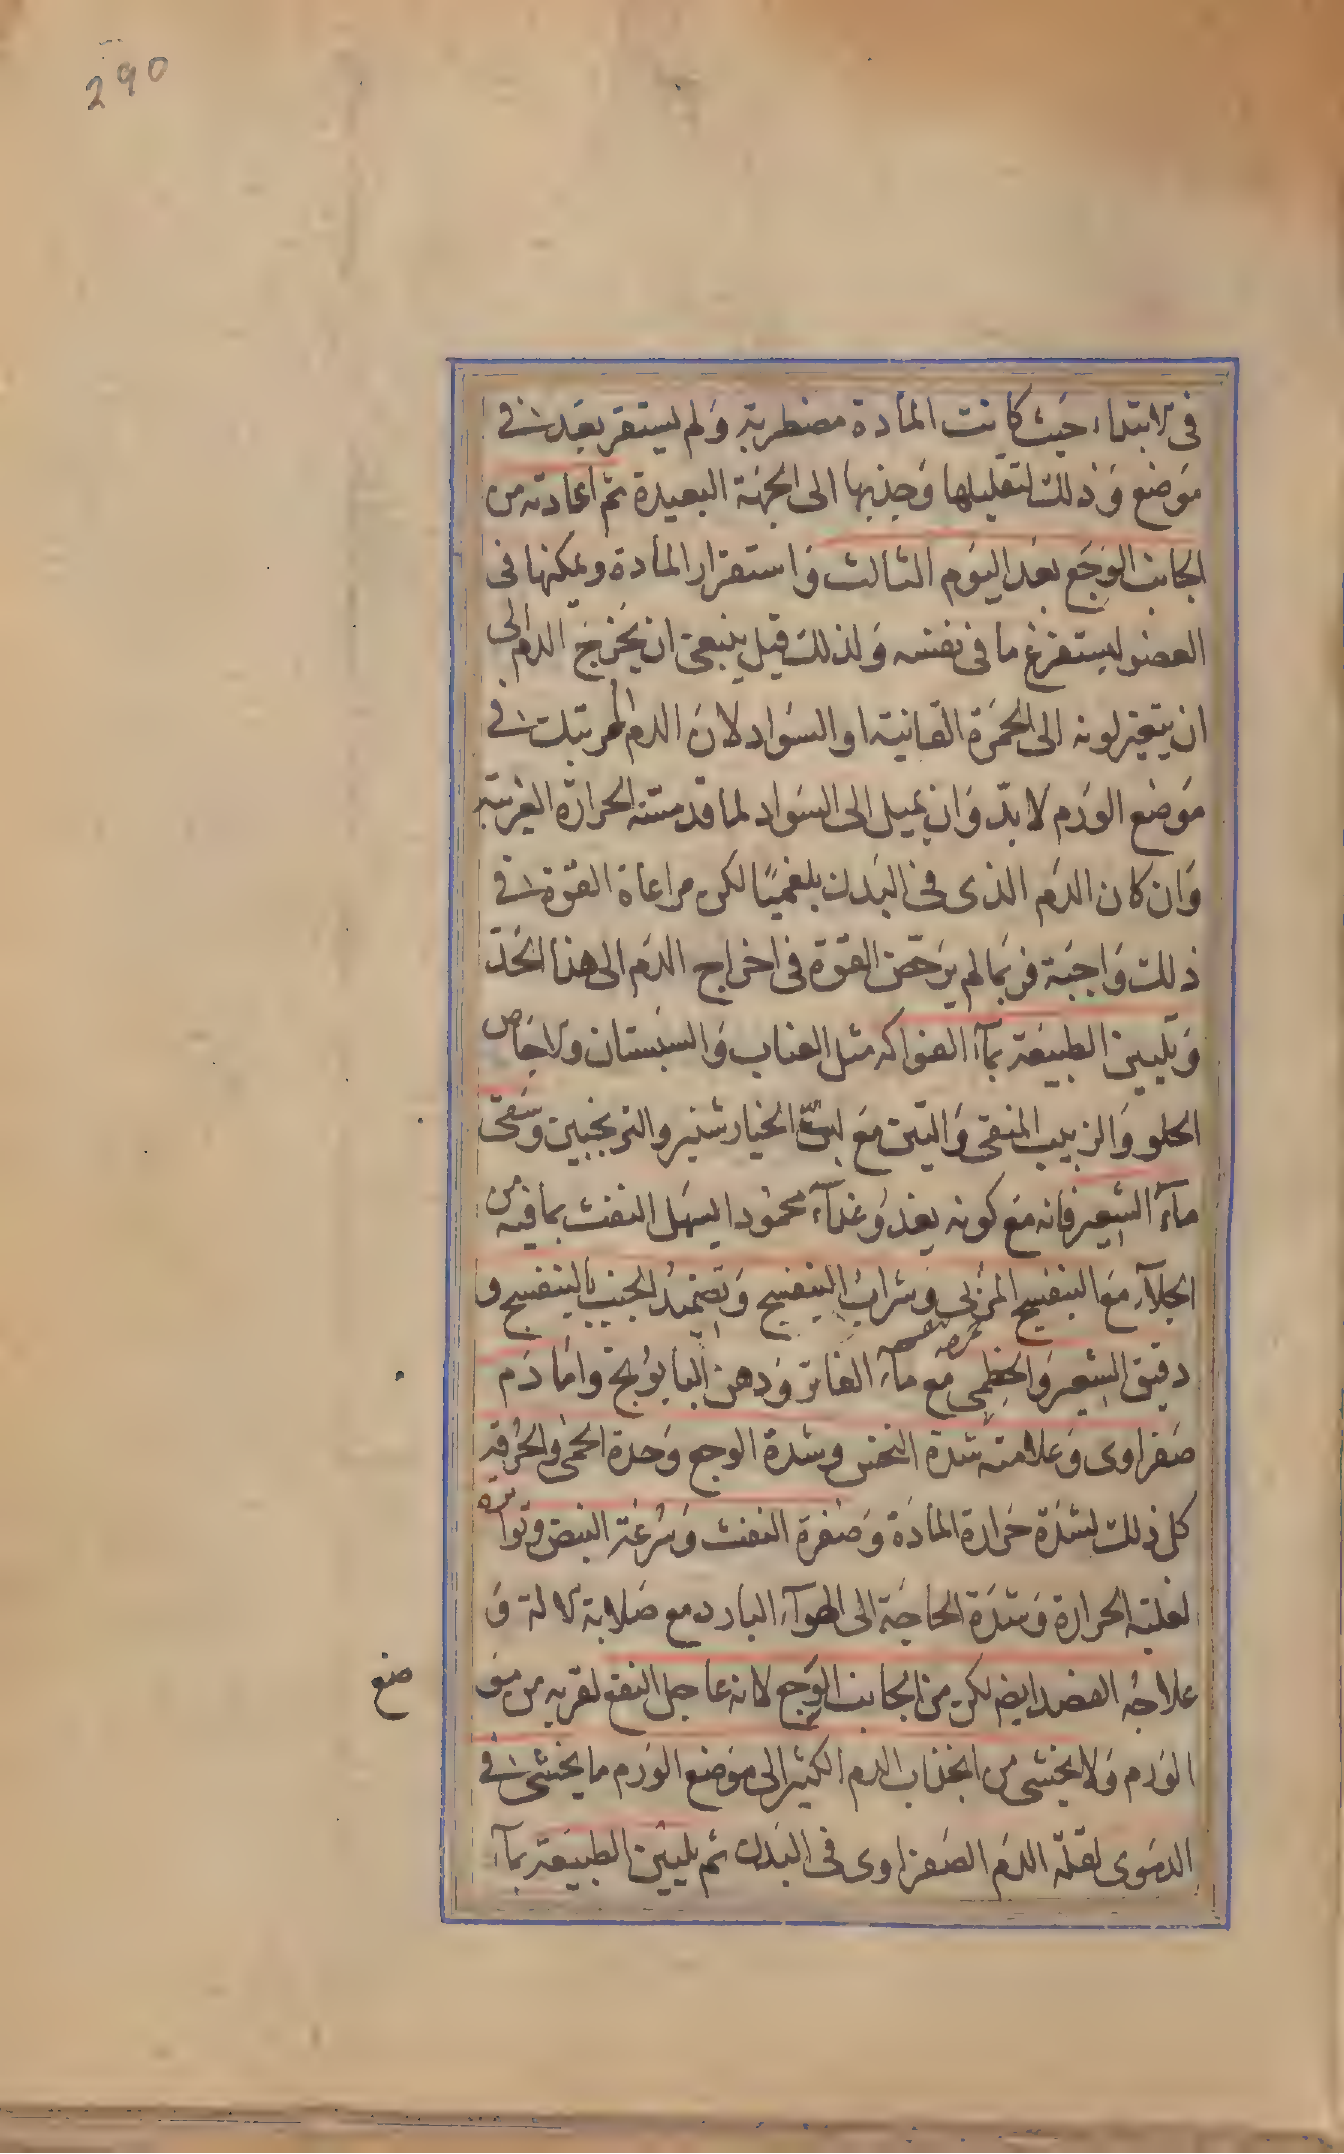 290
فى الابتداء حيث كانت المادة مضطربة ولم يستقر بعد فى
موضع وذلك لتقليلها وجذبها الى الجهة البعيدة ثم اعادته من
الجانب الوجع بعد اليوم الثالث واستقرار المادة وتمكنها فى
العضو ليستفرغ ما فى نفسه ولذلك قيل ينبغى ان يخرج الدم الى
ان يتغير لونه الى الحمرة القانية او السواد لان الدم المرتبك فى
موضع الورم لا بد وان يميل الى السواد لما قد مسته الحرارة الغريبة
وان كان الدم الذى فى البدن بلغميا لكن مراعاة القوة فى
ذلك واجبة فربما لم يرخص القوة فى اخراج الدم الى هذا الحد
وتليين الطبيعة بماء الفواكه مثل العناب والسبستان والاجاص
الحلو والزبيب المنقى والتين مع لب الخيارشنبر والترنجبين وسقى
ماء الشعير فانه مع كونه يغذو غذاء محمودا يسهل النفث بما فيه من
الجلاء مع البنفسج المربى وشراب البنفسج وتضميد الجنب بالبنفسج و
دقيق الشعير والخطمى مع ماء الفاتر ودهن البابونج واما دم
صفراوى وعلامته شدة النخس وشدة الوجع وحدة الحمى والحرقة
كل ذلك لشدة حرارة المادة وصفرة النفث وسرعة النبض وتواتره
لغلبة الحرارة وشدة الحاجة الى الهواء البارد مع صلابة الالة و
علاجه الفصد ايضا لكن من الجانب الوجع لانه عاجل النفع لقربه من مو
ضع
الورم ولا يخشى من انجذاب الدم الكثير الى موضع الورم ما يخشى فى
الدموى لقلة الدم الصفراوى فى البدن ثم تليين الطبيعة بماء